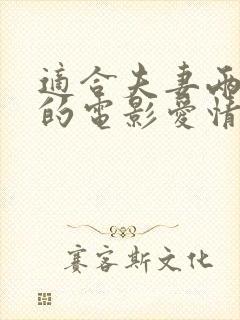 適合夫妻兩
的電影愛情
賽客斯文化